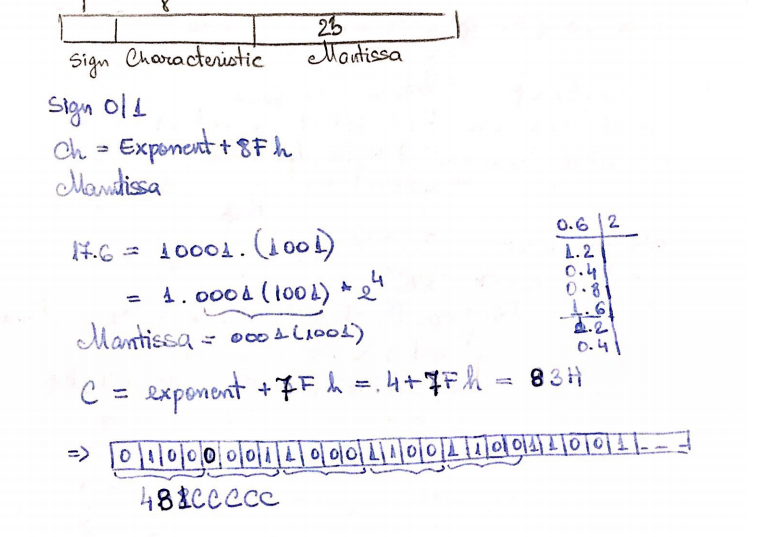 1 8
23
Sign Characteristic Mantissa
Sign 0/1
Ch = Exponent + 8F h
Mantissa
17.6 = 10001.(1001)
= 1.0001(1001) * 2^4
Mantissa = 0001(1001)
0.6 | 2
1.2
0.4
0.8
1.6
1.2
0.4
C = exponent + 7F h = 4 + 7F h = 83H
=> 0|1|0|0|0|0|0|1|1|0|0|0|1|1|0|0|1|1|0|0|1|1|0|0|1|---
481CCCCC